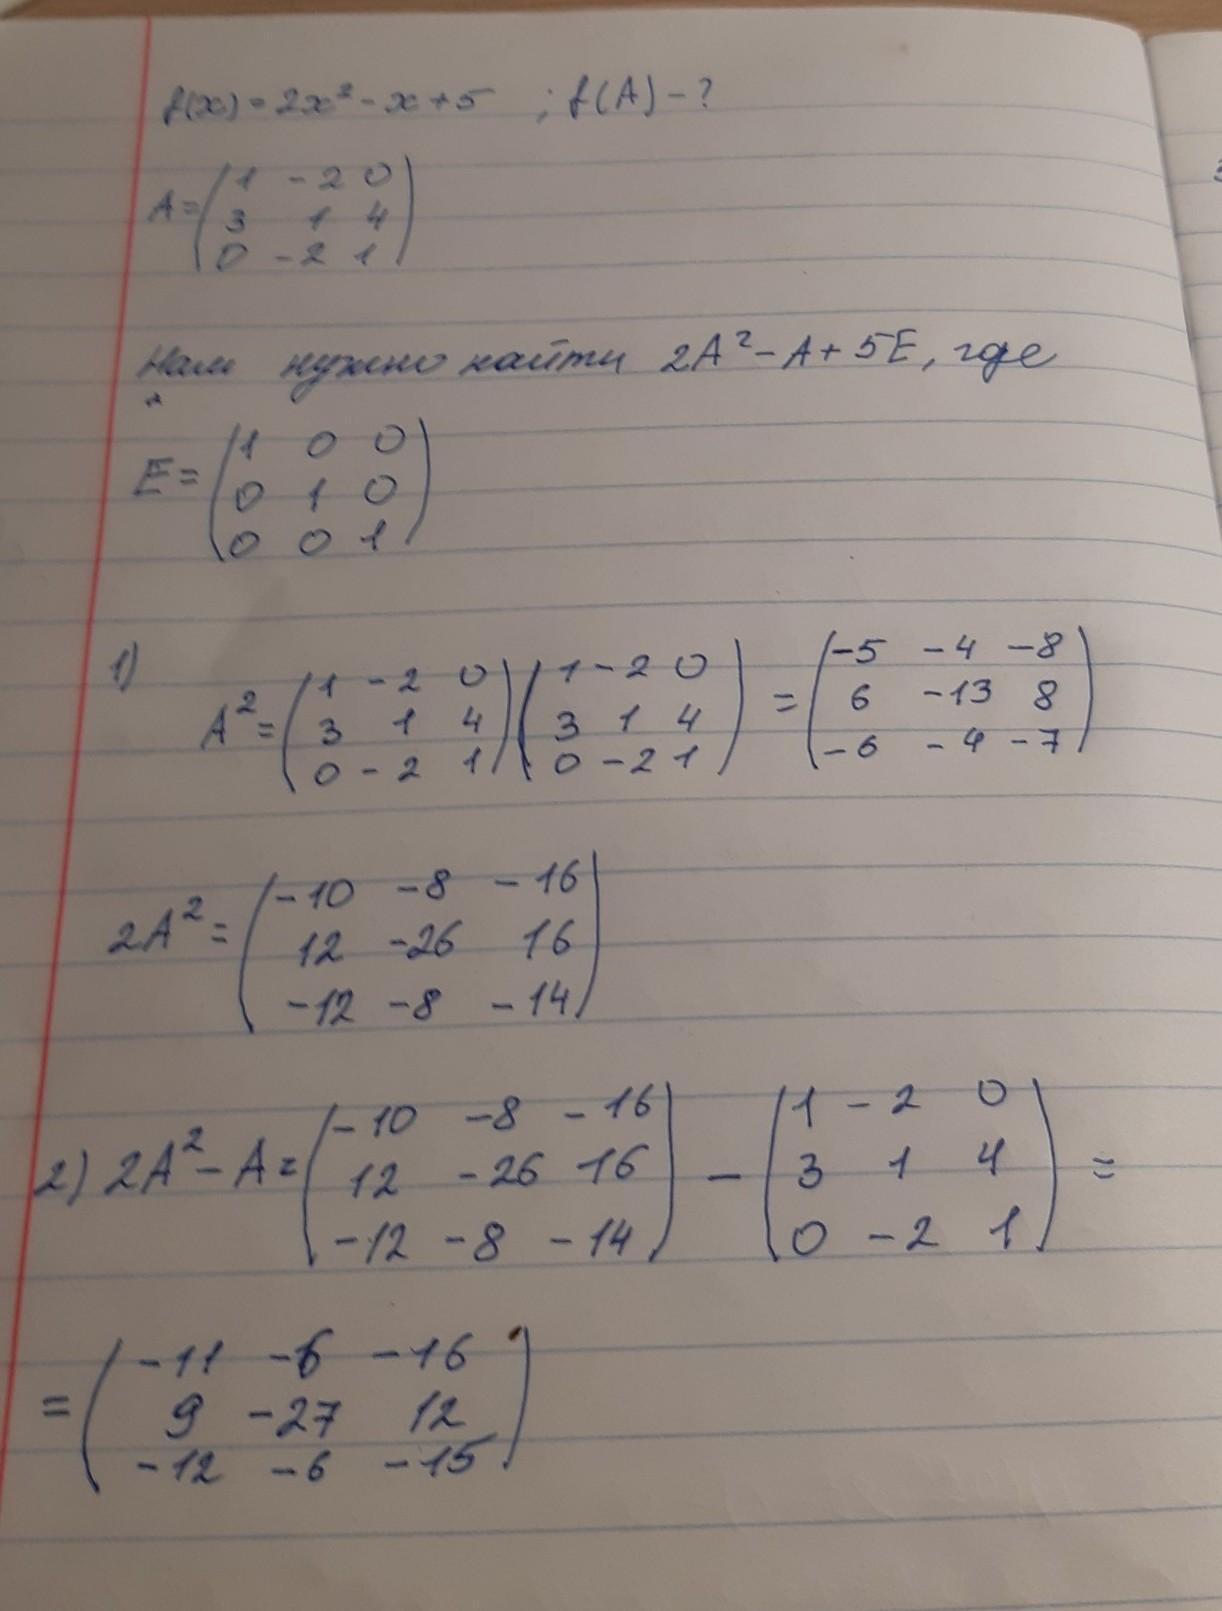 f(x) = 2x² - x + 5 ; f(A) - ?
A = ( 1 -2 0
3 1 4
0 -2 1 )
Нам нужно найти 2A² - A + 5E, где
E = ( 1 0 0
0 1 0
0 0 1 )
1)
A² = ( 1 -2 0 ) ( 1 -2 0 ) = ( -5 -4 -8
3 1 4 3 1 4 6 -13 8
0 -2 1 0 -2 1 -6 -4 -7 )
2A² = ( -10 -8 -16
12 -26 16
-12 -8 -14 )
2) 2A² - A = ( -10 -8 -16 ) - ( 1 -2 0 ) =
12 -26 16 3 1 4
-12 -8 -14 0 -2 1
= ( -11 -6 -16
9 -27 12
-12 -6 -15 )